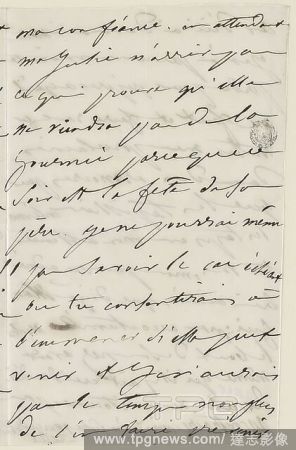 ma confiance. en attendant
ma Julie n'arrive pas
ce qui prouve qu'elle
ne viendra pas de la
journée parce que ce
soir est la fête de son
père. je ne pourrai même
pas savoir le cas échéant
ou tu consentirais à
l'emmener si elle peut
venir et je n'aurais
pas le temps non plus
de l'en faire
www.tpgnews.com / 達志影像